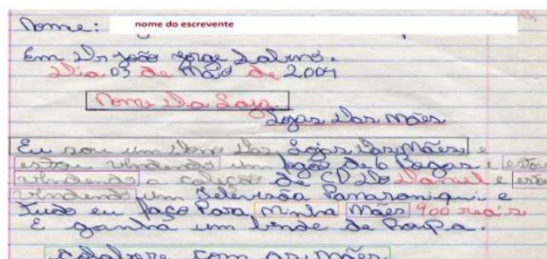 Nome: nome do escrevente
Em Dr João Jorge Sabino.
Dia 03 de maio de 2004
Nome Da Loja
Lojas Das mães
Eu sou um dono Das Lojas Das Mães, e
estou vendendo um fogão de 6 Bogas e estou
vendendo a coleção de CD Do Daniel e estou
vendendo um Televisão Panaroniqui e
Tudo eu faço Para minha Mães 900 reais
E ganha um linde de Roupa.
colabore com as mães